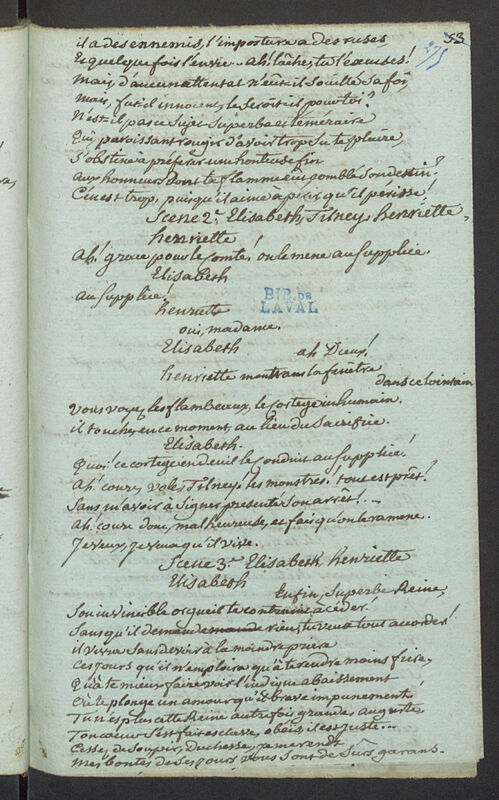 53
275
il a des ennemis, l'imposture a des ruses
Et quelque fois l'envie - ah! lâche, tu l'excuses!
mais, d'aucun attentat n'eût-il souillé sa foi,
mais, fut-il innocent, le seroit-il pour toi?
N'est-il pas ce sujet superbe et téméraire
Qui paroissant rougir d'avoir trop su te plaire,
S'obstine à préférer une honteuse fin
aux honneurs dont ta flamme eût comblé son destin?
C'en est trop, puisqu'il aime à périr, qu'il périsse!
Scene 2e Elisabeth, Tilney, henriette.
henriette
Ah! grace pour le comte! on le mene au supplice.
Elisabeth
au supplice!
henriette
oui, madame.
Elisabeth
ah Dieux!
henriette montrant la fenêtre
dans ce lointain
Vous voyez les flambeaux, le cortege inhumain.
il touche, en ce moment, au lieu du sacrifice.
Elisabeth.
Quoi! ce cortege en deuil le conduit au supplice!
Ah! courez, volez, Tilney; les monstres! tout est prêt!
Sans m'avoir à signer présenté son arrêt!...
Ah! cours donc, malheureuse, et fais qu'on le ramene.
Je veux, je veux qu'il vive.
Scene 3e Elisabeth, henriette
Elisabeth
Enfin, Superbe Reine,
Son invincible orgueil te contraint à céder.
Sans qu'il demande rien, tu veux tout accorder!
il vivra sans devoir à la moindre priere
Ces jours qu'il n'emploira qu'à te rendre moins fiere,
Qu'à te mieux faire voir l'indigne abaissement
Où te plonge un amour qu'il brave impunément!
Tu n'es plus cette Reine autrefois grande, auguste,
Ton coeur s'est fait esclave, obéis, il est juste...
Cesse, de soupirer, duchesse, je me rends.
Mes bontés de ses jours vous sont de surs garans.
BIB. DE
LAVAL